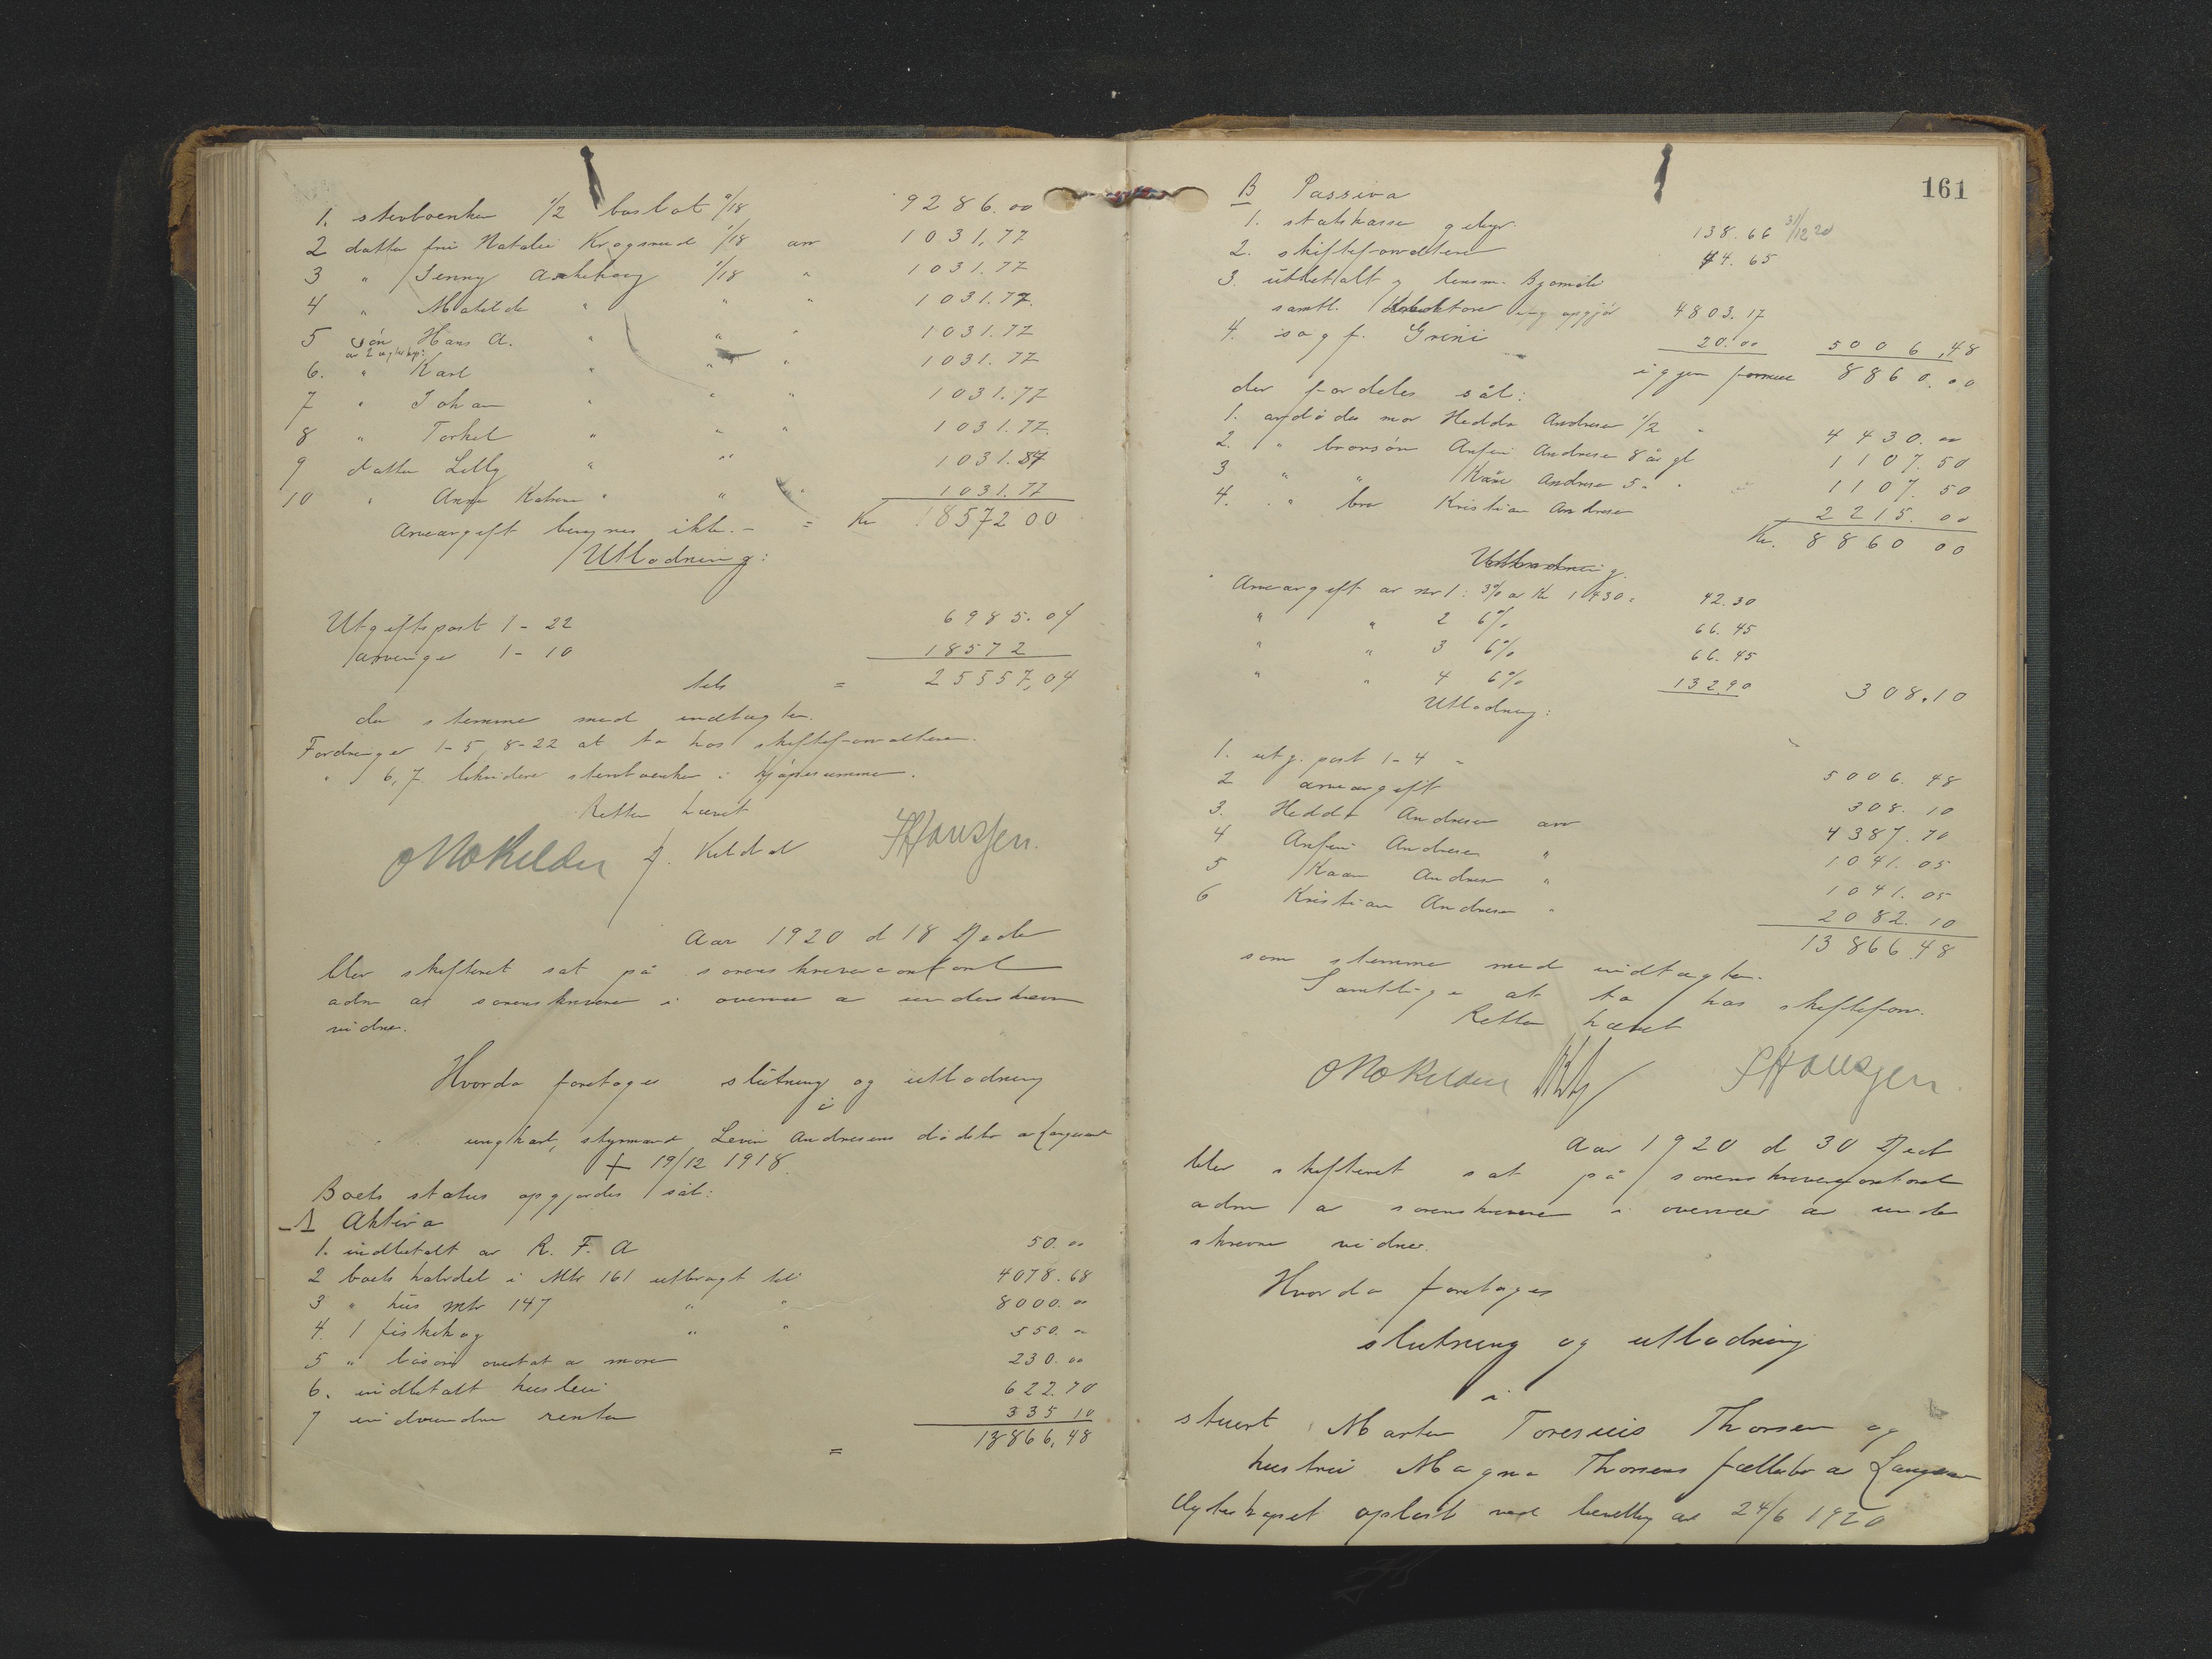 1. stervboenken 1/2 boslod 9/18 9286.00
2 datter fru Natalie Krogsrud 1/18 arv 1031,77
3 " Jenny 1/18 " 1031.77
4 " Matilde " " " 1031.77
5 søn Hans A. " " " 1031.77
av 2 egteskap:
6. " Karl " " " 1031.77
7 " Johan " " " 1031.77
8 " Torkel " " " 1031.77
9 datter Lilly " " 1031.87
10 " Anna " " 1031.77
Arveavgift beregnes ikke. - = Kr 18572 00
Utlodning:
Utgiftspost 1 - 22 6985.04
arvinger 1 - 10 18572
tils = 25557,04
der stemmer med indtægten.
Fordringer 1-5, 8-22 at ta hos skifteforvalteren.
" 6, 7 likviderer stervboenken i kjøpesummen.
Retten hævet
Hanssen.
Aar 1920 d 18 Decbr
blev skifteret sat på sorenskriverkontoret
adm av sorenskriveren i overvær av underskrevne
vidner.
Hvorda foretoges slutning og utlodning
i
ungkarl, styrmand Levin Andresens dødsbo av Langesund
+ 19/12 1918.
Boets status opgjordes sål:
A Aktiva
1. indbetalt av R. F. A 50.00
2 boets halvdel i Mtr 161 utbragt til 4078.68
3 " hus mtr 147 " " 8000.00
4. 1 fiskekag " " 550.00
5 " løsøre overtat av moren 230.00
6. indbetalt husleie 622.70
7 indvundne renter 335 10
= 13866,48
161
B Passiva
1. statskassen gebyr 138.66 31/12 20
2. skifteforvalteren 44.65
3. utbetalt g lensm.
samtl. opgjør 4803.17
4. sagf. Grini 20.00 5006,48
igjen formue 8860.00
der fordeles sål:
1. avdødes mor Hedda Andresen 1/2 - 4430.00
2. " brorsøn Anfin Andresen 8 år gl 1107.50
3 " " Kåre Andresen 5 " " 1107.50
4. " bror Kristian Andresen 2215.00
Kr. 8860 00
Utlodning
Arveavgift av nr 1: 3% av Kr 1430. 42.30
" " 2 6% 66.45
" " 3 6% 66.45
" " 4 6% 132,90 308.10
Utlodning:
1. utg. post 1-4 - 5006.48
2 arveavgift 308.10
3. Hedda Andresen arv 4387.70
4 Anfin Andresen " 1041.05
5 Kaare Andresen " 1041.05
6 Kristian Andresen " 2082.10
13866.48
som stemmer med indtægten.
Samtlige at ta hos skifteforv.
Retten hævet
Hanssen.
Aar 1920 d 30 Decbr
blev skifteret sat på sorenskriverkontoret
adm av sorenskriveren i overvær av under
skrevne vidner.
Hvorda foretoges
slutning og utlodning
i
stuert Marten Toresius Thorsen og
hustru Magna Thorsens fællesbo av Langesund
Egteskapet opløst ved bevilling av 24/6 1920